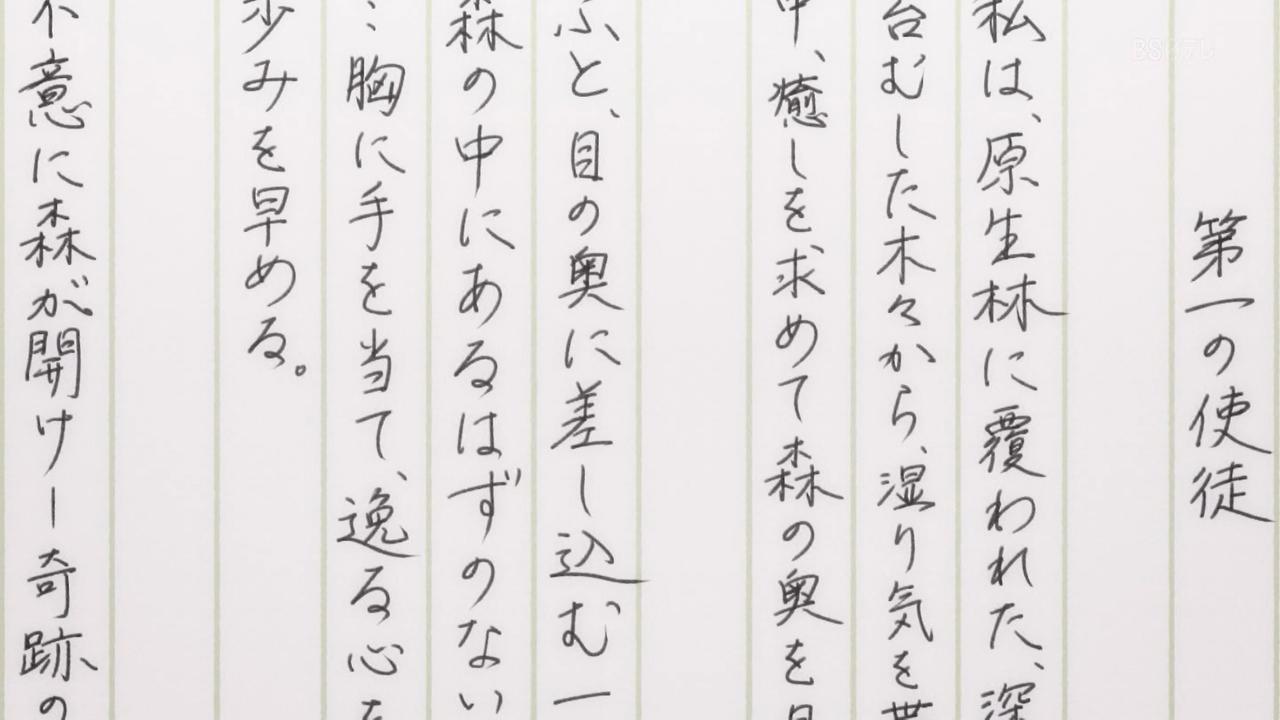 第一の使徒
私は、原生林に覆われた、深
苔むした木々から、湿り気を帯
中、癒しを求めて森の奥を目
ふと、目の奥に差し込む一
森の中にあるはずのない
…胸に手を当て、逸る心を
歩みを早める。
不意に森が開けー奇跡の
BS日テレ